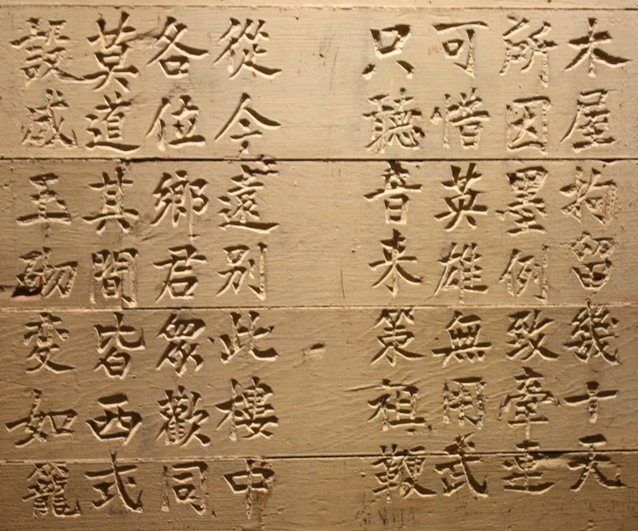 木屋拘留幾十天
所因墨例致牽連
可惜英雄無用武
只聽音来策祖鞭
從今遠别此樓中
各位鄉君眾歡同
莫道其間皆西式
設成玉砌變如籠